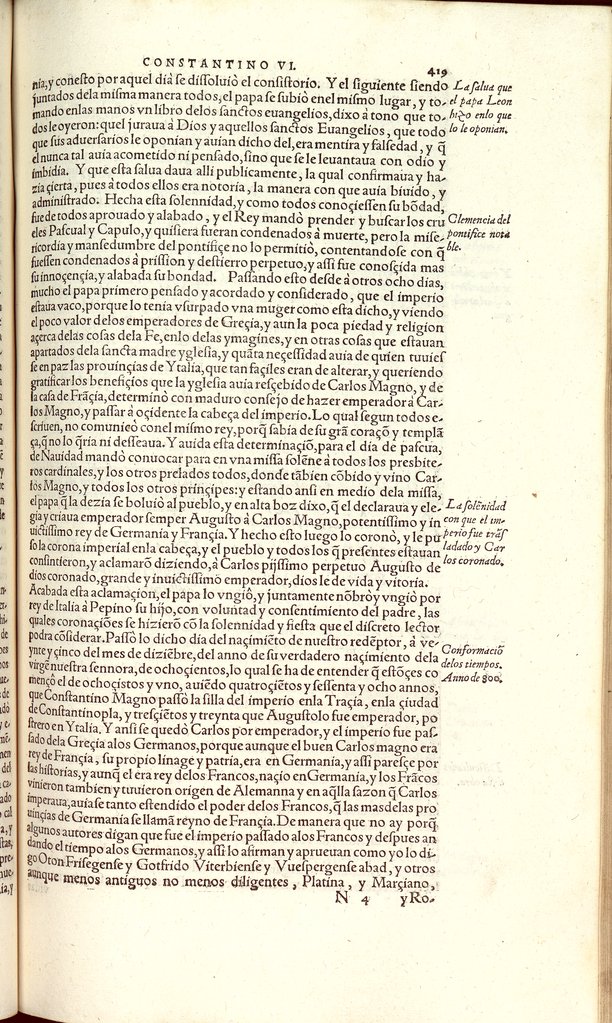 CONSTANTINO VI.
419
nia, y cõnesto por aquel dià se dissoluiò el consistorio. Y el siguiente siendo
juntados dela misma manera todos, el papa se subiò enel mismo lugar, y to-
mando enlas manos vn libro delos sanctos euangelios, dixo à tono que to-
dos le oyeron: quel juraua à Dios y aquellos sanctos Euangelios, que todo
que sus aduersarios le oponian y auian dicho del, era mentira y falsedad, y q̃
el nunca tal auia acometido ni pensado, sino que se le leuantaua con odio y
imbidia. Y que esta salua daua alli publicamente, la qual confirmaua y ha-
zia çierta, pues à todos ellos era notoria, la manera con que auia biuido, y
administrado. Hecha esta solennidad, y como todos conoçiessen su bõdad,
fue de todos aprouado y alabado, y el Rey mandò prender y buscar los cru
eles Pascual y Capulo, y quisiera fueran condenados à muerte, pero la mise-
ricordia y mansedumbre del pontifiçe no lo permitiò, contentandose con q̃
fuessen condenados à prission y destierro perpetuo, y assi fue conosçida mas
su innoçençia, y alabada su bondad. Passando esto desde à otros ocho dias,
mucho el papa primero pensado y acordado y considerado, que el imperio
estaua vaco, porque lo tenia vsurpado vna muger como esta dicho, y viendo
el poco valor delos emperadores de Greçia, y aun la poca piedad y religion
açerca delas cosas dela Fe, enlo delas ymagines, y en otras cosas que estauan
apartados dela sancta madre yglesia, y quãta neçessidad auia de quien tuuies
se en paz las prouinçias de Ytalia, que tan façiles eran de alterar, y queriendo
gratificar los benefiçios que la yglesia auia resçebido de Carlos Magno, y de
la casa de Frãçia, determinò con maduro consejo de hazer emperador à Car-
los Magno, y passar à oçidente la cabeça del imperio. Lo qual segun todos e-
scriuen, no comunicò conel mismo rey, porq̃ sabia de su grã coraçõ y templã
ça, q̃ no lo q̃ria ni desseaua. Y auida esta determinaçiõ, para el dia de pascua,
de Nauidad mandò conuocar para en vna missa solẽne à todos los presbite-
ros cardinales, y los otros prelados todos, donde tãbien cõbido y vino Car-
los Magno, y todos los otros prinçipes: y estando ansi en medio dela missa,
el papa q̃ la dezia se boluiò al pueblo, y en alta boz dixo, q̃ el declaraua y ele-
gia y criaua emperador semper Augusto à Carlos Magno, potentissimo y in
uictissimo rey de Germania y Françia. Y hecho esto luego lo coronò, y le pu
so la corona imperial enla cabeça, y el pueblo y todos los q̃ presentes estauan
consintieron, y aclamarõ diziendo, à Carlos pijssimo perpetuo Augusto de
dios coronado, grande y inuictissimo emperador, dios le de vida y vitoria.
Acabada esta aclamaçion, el papa lo vngiò, y juntamente nõbrò y vngiò por
rey de Italia à Pepino su hijo, con voluntad y consentimiento del padre, las
quales coronaçiões se hizierõ cõ la solennidad y fiesta que el discreto lector
podra cõsiderar. Passò lo dicho dia del naçimiẽto de nuestro redẽptor, à ve-
ynte y çinco del mes de diziẽbre, del anno de su verdadero naçimiento dela
virgẽ nuestra sennora, de ochoçientos, lo qual se ha de entender q̃ estõçes co
mençò el de ochoçistos y vno, auiẽdo quatroçiẽtos y sessenta y ocho annos,
que Constantino Magno passò la silla del imperio enla Traçia, enla çiudad
de Constantinopla, y tresçiẽtos y treynta que Augustolo fue emperador, po
strero en Ytalia. Y ansi se quedò Carlos por emperador, y el imperio fue pas-
sado dela Greçia alos Germanos, porque aunque el buen Carlos magno era
rey de Françia, su propio linage y patria, era en Germania, y assi paresçe por
las historias, y aunq̃ el era rey delos Francos, naçio en Germania, y los Frãcos
vinieron tambien y tuuieron origen de Alemanna y en aq̃lla sazon q̃ Carlos
imperaua, auiase tanto estendido el poder delos Francos, q̃ las mas delas pro
uinçias de Germania se llamã reyno de Françia. De manera que no ay porq̃
algunos autores digan que fue el imperio passado alos Francos y despues an
dando el tiempo alos Germanos, y assi lo afirman y aprueuan como yo lo di-
go Oton Frisegense y Gotfrido Viterbiense y Vuespergense abad, y otros
aunque menos antiguos no menos diligentes, Platina, y Marçiano,
N 4 y Ro-
La salua que
el papa Leon
hizo enlo que
lo le oponian.
Clemencia del
pontifice nota
ble.
La solẽnidad
con que el im-
perio fue trãs
ladado y Car
los coronado.
Conformaciõ
delos tiempos.
Anno de 800.